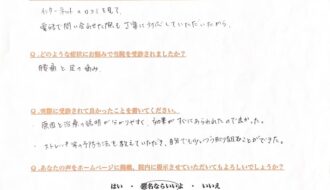 インターネットの口コミを見て、
電話で問い合わせた際も丁寧に対応していただいたから。
Q.どのような症状にお悩みで当院を受診されましたか？
腰痛と足の痛み
Q.実際に受診されて良かったことを書いてください。
・原因と治療の説明が分かりやすく、効果がすぐにあらわれたので良かった。
・ストレッチ等の予防方法も教えていただき、自分でも少しづつ取り組むことができた。
Q.あなたの声をホームページに掲載、院内に掲示させていただいてもよろしいでしょうか？
はい ・ 匿名ならいいよ ・ いいえ